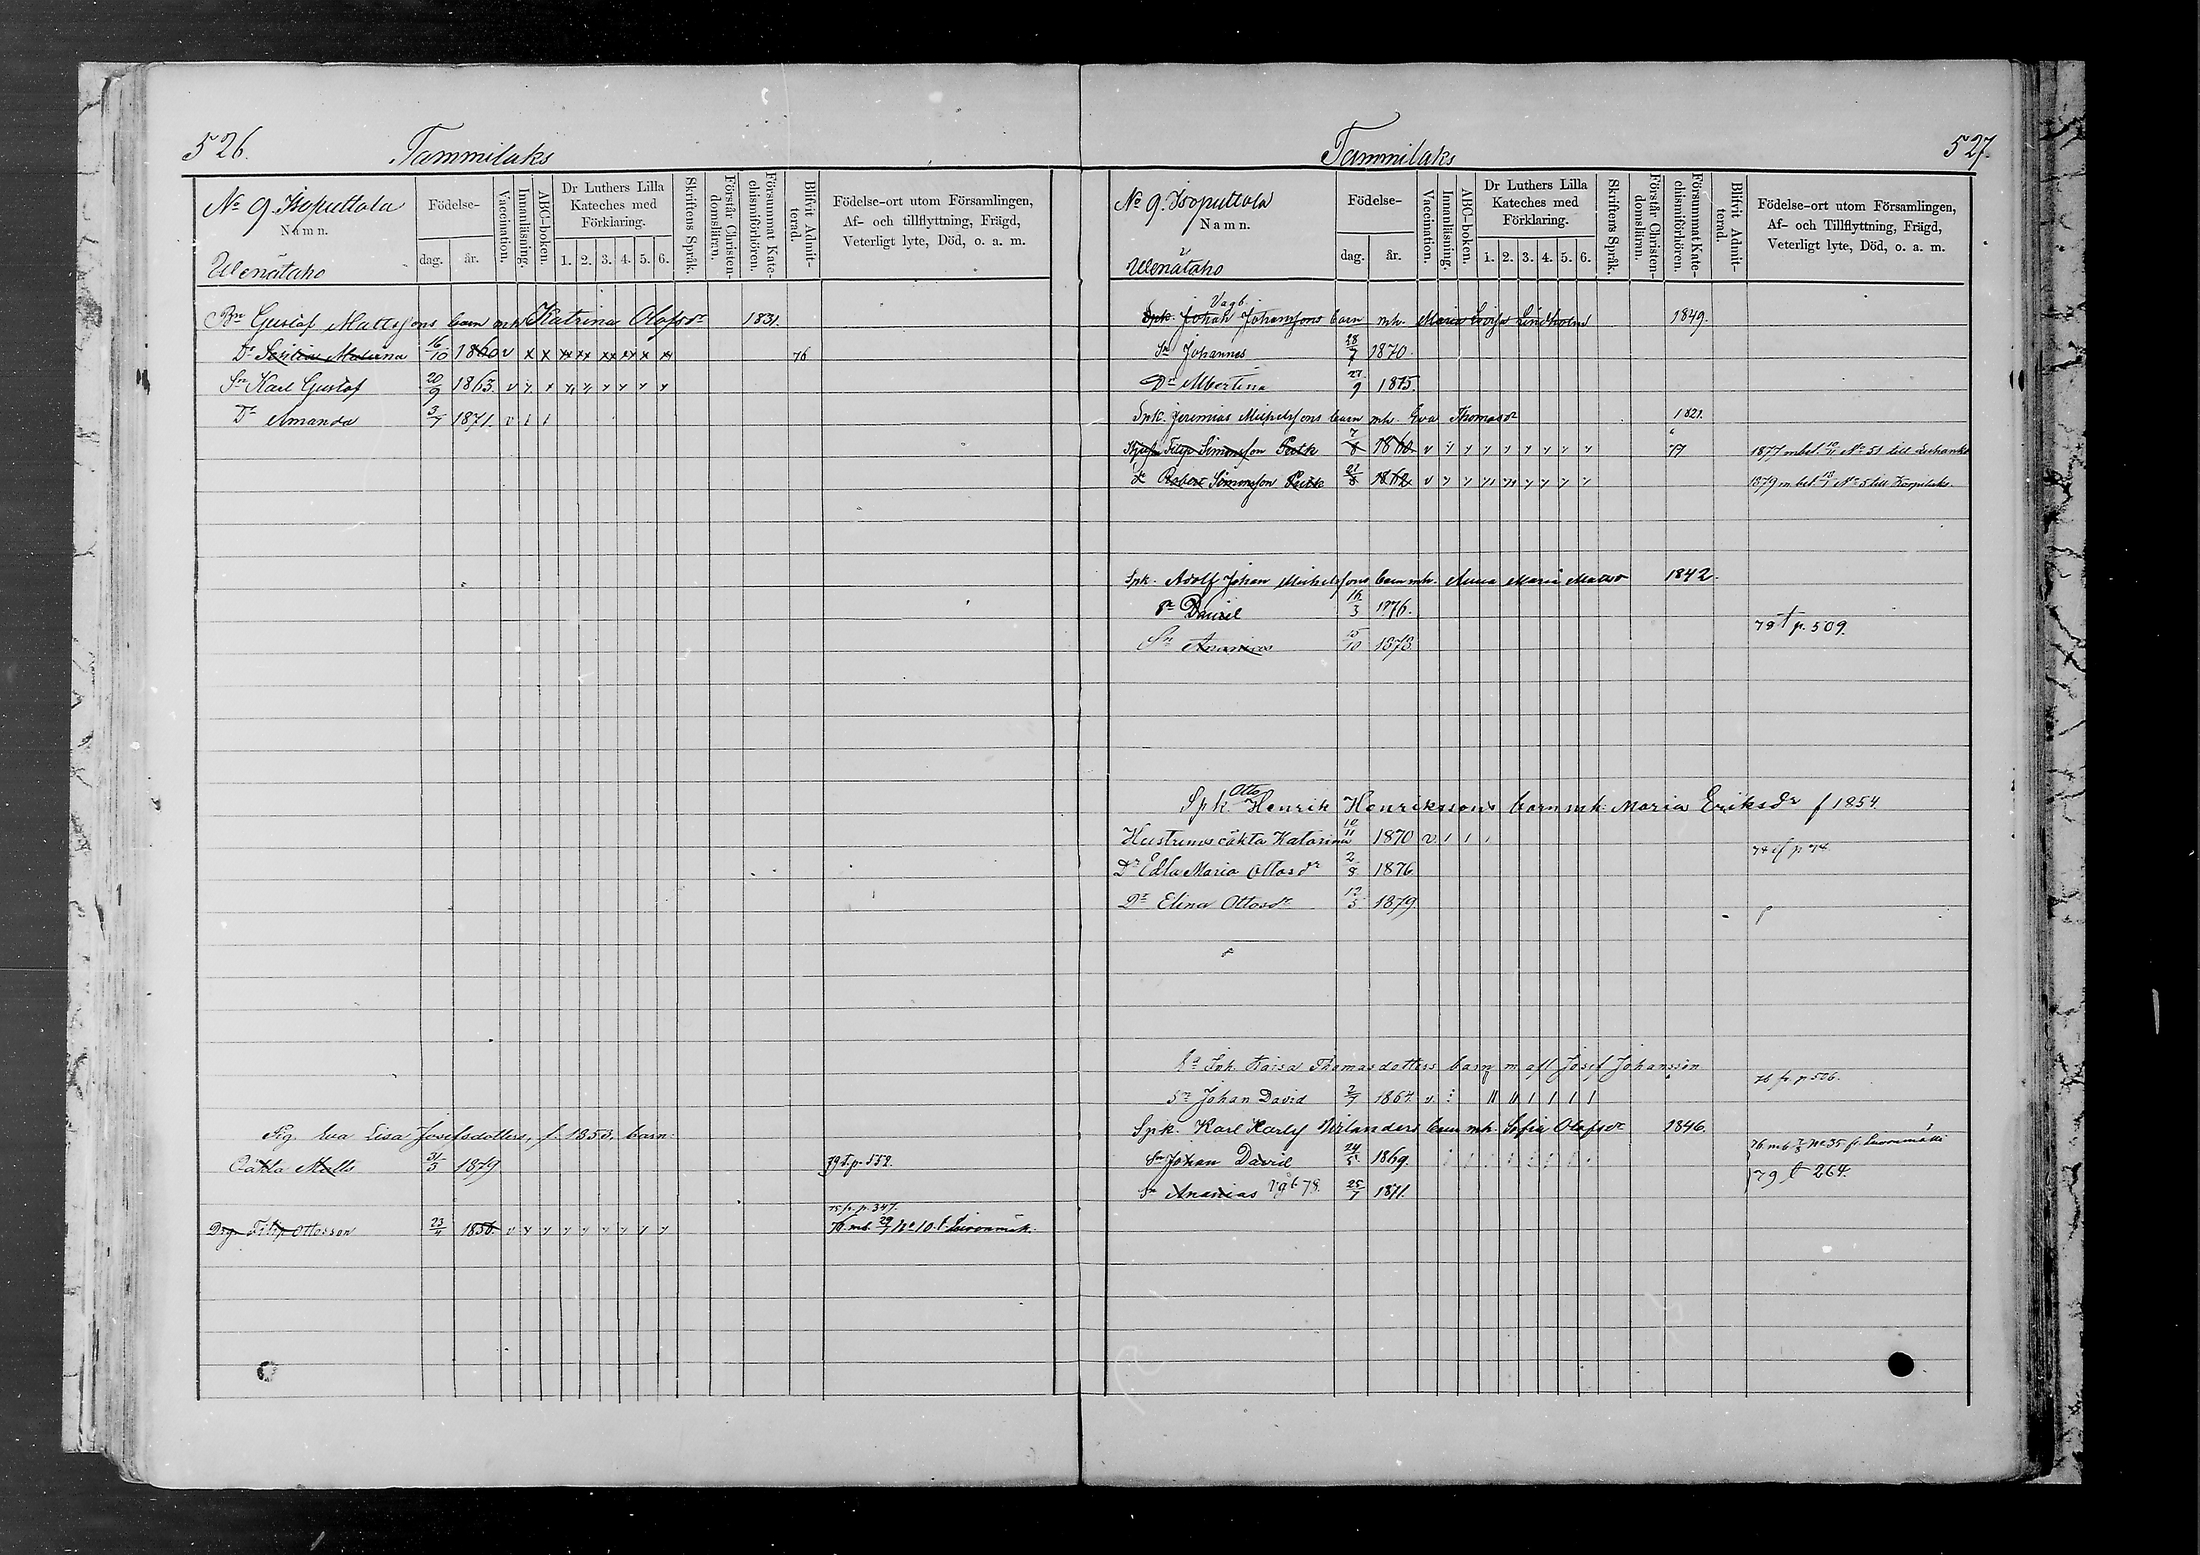 526.
Tammilaks
No 9 Isoputtola
Namn.
Ulenätaho
Födelse-
dag.
år.
Vaccination.
Innanläsning.
ABC-boken.
Dr Luthers Lilla Kateches med Förklaring.
1. 2. 3. 4. 5. 6.
Skriftens Språk.
Förstår Christendomsläran.
Försummat Katechismiförhören.
Blifvit Admitterad.
Födelse-ort utom Församlingen,
Af- och tillflyttning, Frägd,
Veterligt lyte, Död, o. a. m.
Bn Gustaf Mattssons barn mh Katrina Olofsdr 1831.
Dr Materna 16/10 1860 v x x xx xx xx xx x xx 76
Sn Karl Gustaf 20/9 1863. v
Dr Amanda 3/7 1871. v 1 1
Pig. Eva Lisa Josefsdotters, f. 1853, barn:
Oäkta Matts 31/3 1879 79 t. p. 552.
75 fr. p. 347.
Drg. Filip Ottosson 23/4 1856. v 76. mb. 29/7 No 10. t.
Tammilaks
527.
No 9. Isoputtola
Namn.
Ulenätaho
Födelse-
dag.
år.
Vaccination.
Innanläsning.
ABC-boken.
Dr Luthers Lilla Kateches med Förklaring.
1. 2. 3. 4. 5. 6.
Skriftens Språk.
Förstår Christendomsläran.
Försummat Katechismiförhören.
Blifvit Admitterad.
Födelse-ort utom Församlingen,
Af- och Tillflyttning, Frägd,
Veterligt lyte, Död, o. a. m.
Vagb.
Spk. Johan Johanssons barn mh. Maria Lovisa Lindholm 1849.
Sn Johannes 28/7 1870.
Dr Albertina 27/9 1875.
Spk. Jeremias Michelssons barn mh. Eva Thomasdr 1821.
Filip Simonsson Putk 7/8 1860. v 77 1877 mbet. No 51 till
Dr Robert Simonsson Putk 22/8 1862. v 1879 m bet. No 5 till Kospilaks.
Spk. Adolf Johan Michelssons barn mh. Anna Maria Matsdr 1842.
Sn Daniel 16/3 1876.
78 t p. 509.
Sn Ananias 10 1878.
Otto
Spk. Henrik Henrikssons barn mh: Maria Eriksdr f 1854
Hustruns oäkta Katarina 10/11 1870 v 1 1 1
Dr Edla Maria Ottosdr 2/8 1876
Dr Elina Ottosdr 12/3 1879
Kaisa Thomasdotters barn m afl Josef Johansson
76 fr. p 506.
Sn Johan David 2/7 1864. v
Spk. Karl Karls Wirlanders barn mh. Sofia Olofsdr 1846.
76 mb No 35 fr
Sn Johan David 24/5 1869.
79 t 264.
Sn Ananias Vgb. 78. 25/7 1871.